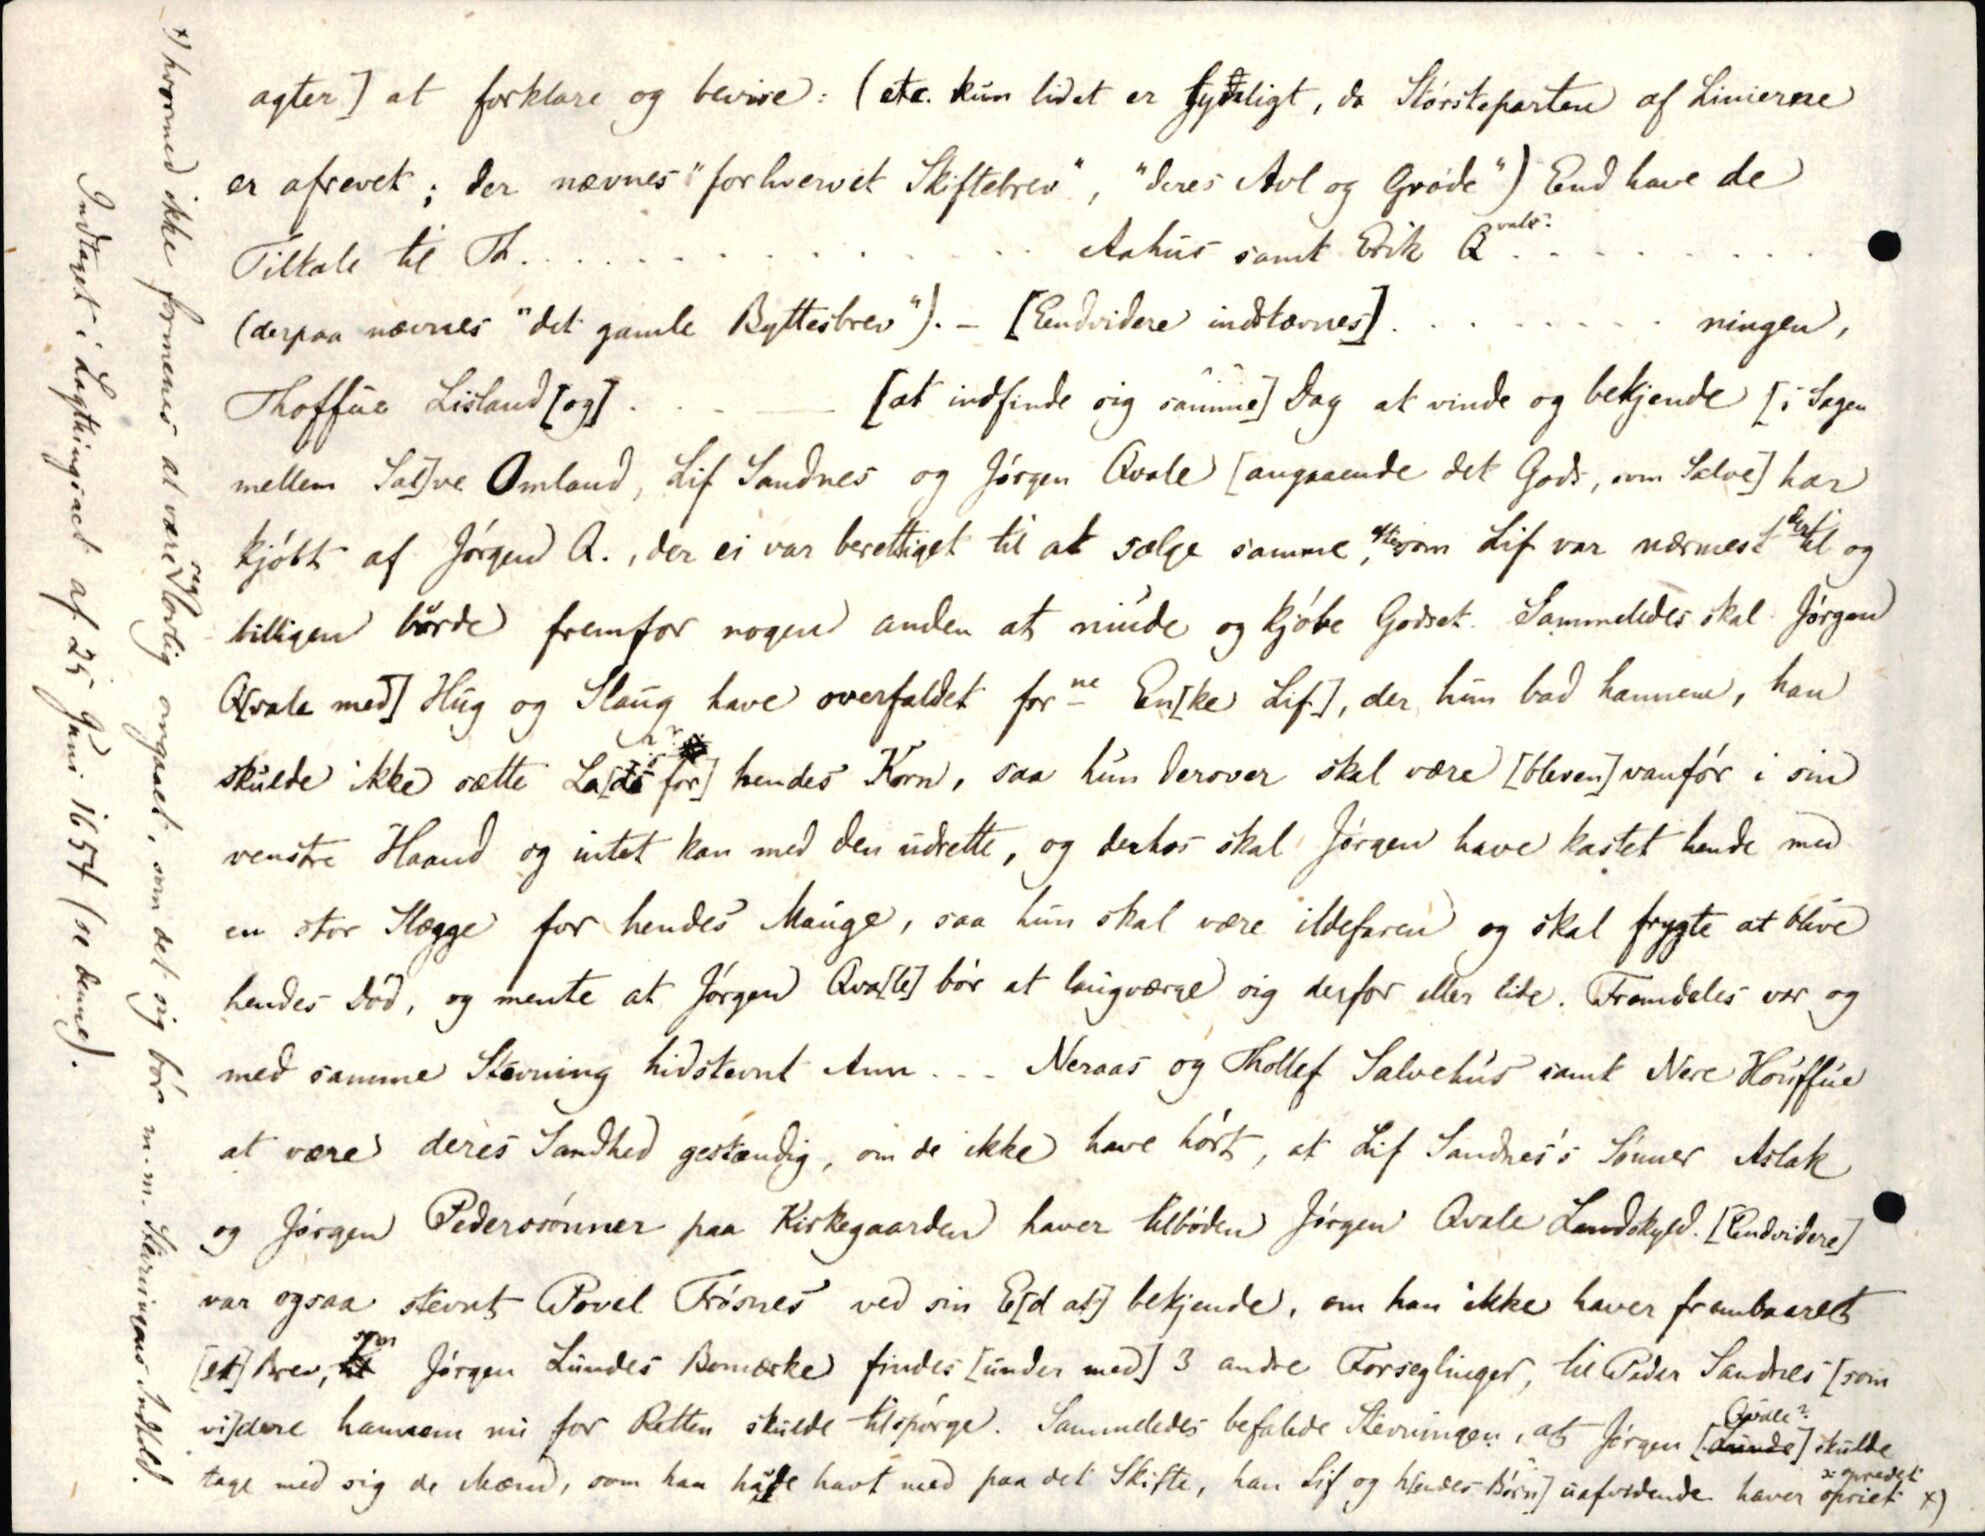 agter] at forklare og bevise: (etc. kun lidet er tydeligt, da Størsteparten af Linierne
er afrevet; der nævnes "forhvervet Skiftebrev", "deres Avl og Grøde") End have de
Tiltale til Th. . . . . . . . . . . . . . Aahus samt Erik Qvale? . . . . . . . . .
(derpaa nævnes "det gamle Byttesbrev"). – [Eendvidere indstævnes] . . . . . . . . ningen,
Thoffue Lisland [og] . . . . [at indfinde sig samme] Dag at vinde og bekjende [i Sagen
mellem Sal]ve Omland, Lif Sandnes og Jørgen Qvale [angaaende det Gods, som Salve] har
kjøbt af Jørgen Q., der ei var berettiget til at sælge samme, eftersom Lif var nærmest dertil og
billigen burde fremfor nogen anden at niude og kjøbe Godset. Sammeledes skal Jørgen
Q[vale med] Hug og Slaug have overfaldet forne En[ke Lif], der hun bad hannem, han
skulde ikke sætte La[ for] hendes Korn, saa hun derover skal være [bleven] vanfør i sin
venstre Haand og intet kan med den udrette, og derhos skal Jørgen have kastet hende med
en stor Slægge for hendes Mauge, saa hun skal være ildefaren og skal frygte at blive
hendes Død, og mente at Jørgen Qva[le] bør at laugværge sig derfor eller lide. Fremdeles var og
med samme Stevning hidstevnt Ann . . . Neraas og Thollef Salvehus samt Nere Houffue
at være deres Sandhed gestændig, om de ikke have hørt, at Lif Sandnes's Sønner Aslak
og Jørgen Pederssønner paa Kirkegaarden haver tilbøden Jørgen Qvale Landskyld. [Endvidere]
var ogsaa stevnt Povel Frøsnes ved sin E[d at] bekjende, om han ikke haver frembaaret
[et] Brev, som Jørgen Lundes Bomærke findes [under med] 3 andre Forseglinger, til Peder Sandnes [som
vi]dere hannem nu for Retten skulde tilspørge. Sammeledes befalede Stevningen, at Jørgen [Lunde] Qvale? skulde
tage med sig de Mænd, som han hafde havt med paa det Skifte, han Lif og h[endes Børn] uafvidende haver opriet ɔ: opredet x)
x) hvormed ikke formenes at være saa lovlig omgaaet, som det sig bør m.m. Stævningens Indhold.
Indtaget i Lagthingsact af 25 Juni 1654 (se denne).